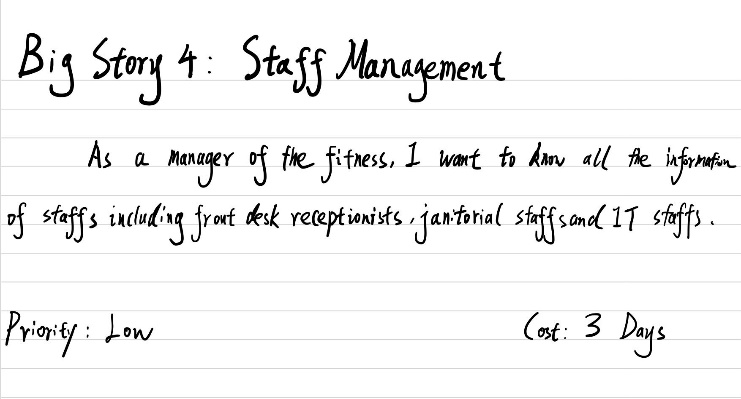 Big Story 4: Staff Management
As a manager of the fitness, I want to know all the information
of staffs including front desk receptionists, janitorial staffs and IT staffs.
Priority: Low Cost: 3 Days